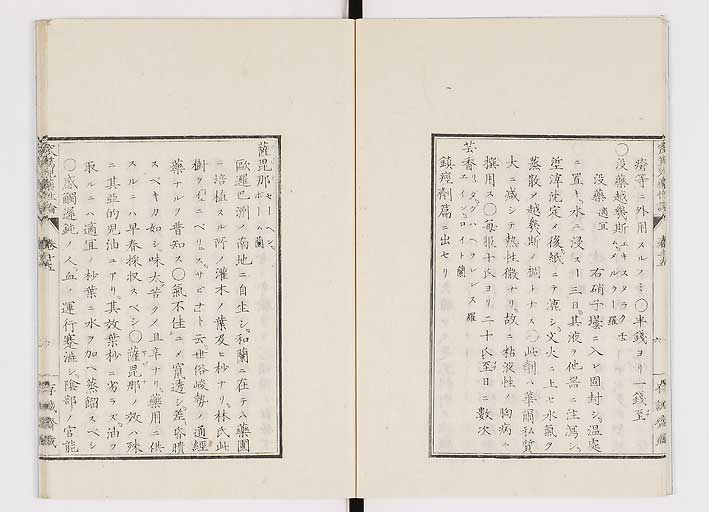 瘡等ニ外用スルノミ〇半錢ヨリ一錢至
〇没藥越幾斯 エキスタラクト ムメルラー 羅
没藥 適宜
右硝子壜ニ入レ固封シ温處
ニ置キ水ニ浸ス一三日其液ヲ他器ニ注瀉シ
塗滓沈定ノ後紙ニテ漉シ文火ニ上セ水氣ヲ
蒸散メ越幾斯ノ稠トナス〇此劑ハ華爾私質
大ニ減シテ熱性微ナリ故ニ粘液性ノ胸病ニ
撰用ス〇毎服十氏ヨリ二十氏至日ニ數次
芸香
鎮痙劑篇ニ出セリ
薩毘那 セーヘン ボーム 蘭
歐邏巴洲ノ南地ニ自生シ和蘭ニ在テハ藥園
ニ培植スル所ノ灌木ノ葉及ヒ杪ナリ林氏此
樹ヲイニペリュスサビナト云世俗峻勢ノ通經
藥ナルヲ昔知ス〇氣不佳ニメ竄透シ
スベキカ如シ味大苦クノ且辛ナリ藥用ニ供
スルニハ早春採收スベシ〇薩毘那ノ效ハ殊
ニ其亞的兒油ニアリ其效葉杪ニ劣ラズ油ヲ
取ルニハ適宜ノ杪葉ニ水ヲ加ヘ蒸餾スベシ
〇感觸遲鈍ノ人血ノ運行蹇澁シ陰部ノ官能